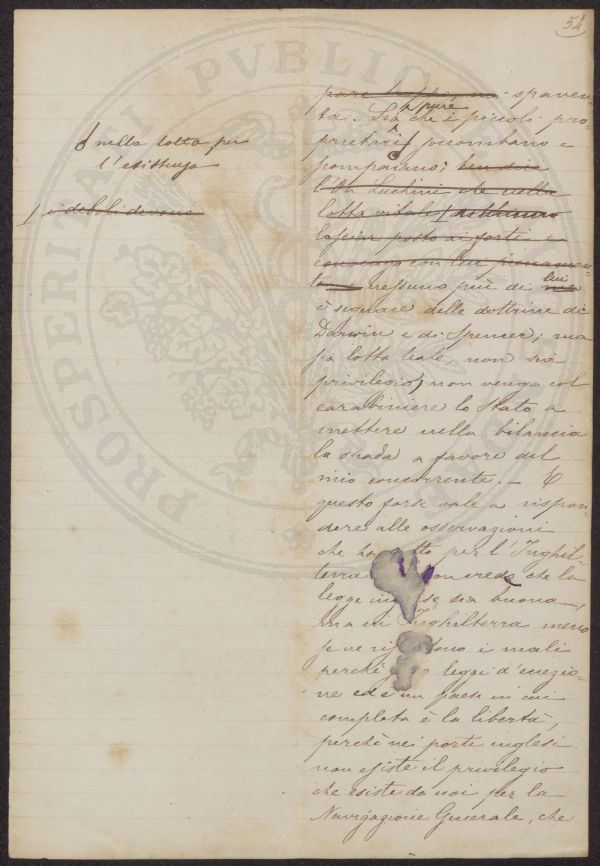 54
nella lotta per
l'esistenza
i deboli devono
pare troppo spaven-
ta. Sia pure che i piccoli pro-
prietari soccombano e
scompaiano;
l'On Luchini che nella
lotta vitale debbano
lasciar posto ai forti e
convengo con lui pienamen-
te nessuno più di lui me
è seguace delle dottrine di
Darwin e di Spencer; ma
sia lotta leale, non sia
privilegio, non venga col
carabiniere lo Stato a
mettere nella bilancia
la spada a favore del
mio concorrente. - E
questo forse vale a rispon-
dere alle osservazioni
che ha per l'Inghil-
terra creda che la
legge sia buona,
ma in Inghilterra meno
se ne i mali
perchè leggi d'eccezio-
ne ed è un paese in cui
completa è la libertà,
perchè nei porti inglesi
non esiste il privilegio
che esiste da noi per la
Navigazione Generale, che